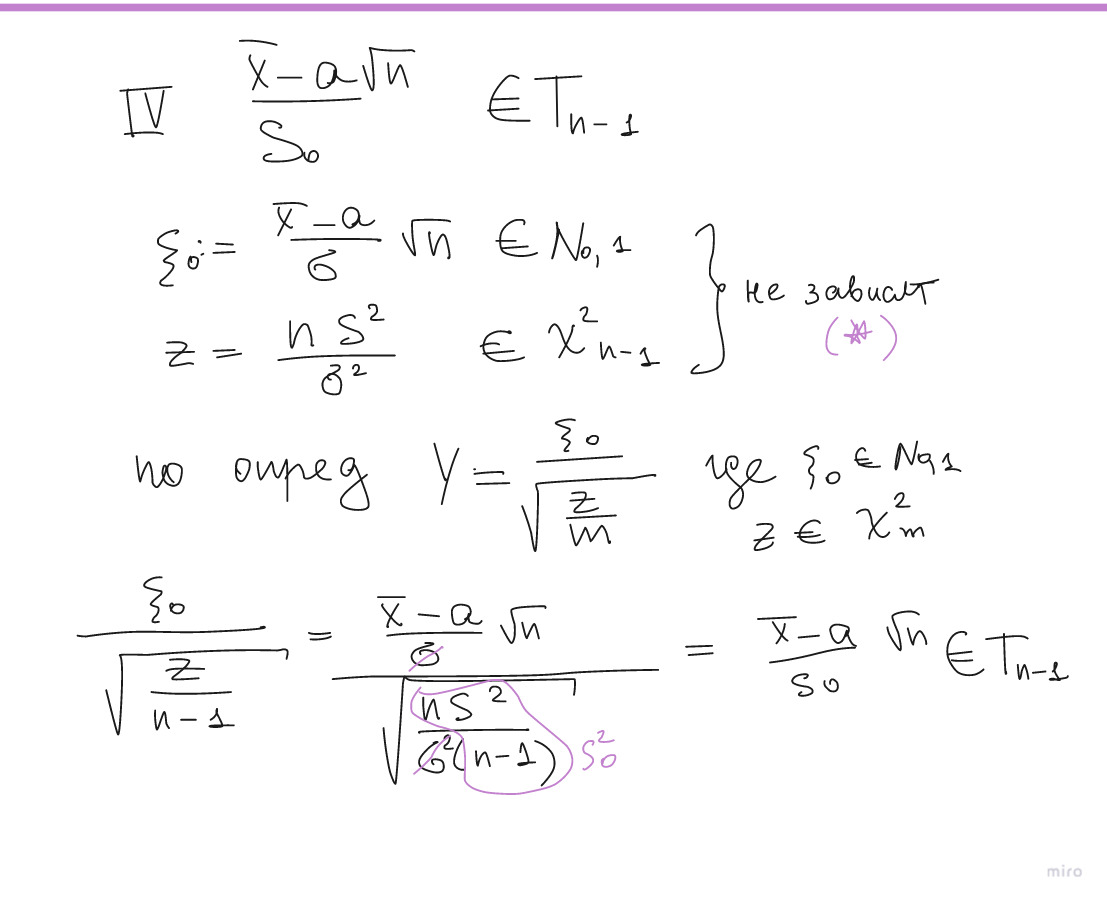 IV (x̄ − a √n) / S₀ ∈ Tₙ₋₁
ξ₀ := (x̄ − a)/σ √n ∈ N₀,₁
z = n S² / σ² ∈ χ²ₙ₋₁
не зависят
(*)
по опред Y = ξ₀ / √(z/m) где ξ₀ ∈ N₀,₁
z ∈ χ²ₘ
ξ₀ / √(z/(n−1)) = ((x̄ − a)/σ √n) / √(nS² / (σ²(n−1))) = (x̄ − a)/S₀ √n ∈ Tₙ₋₁
S₀²
miro